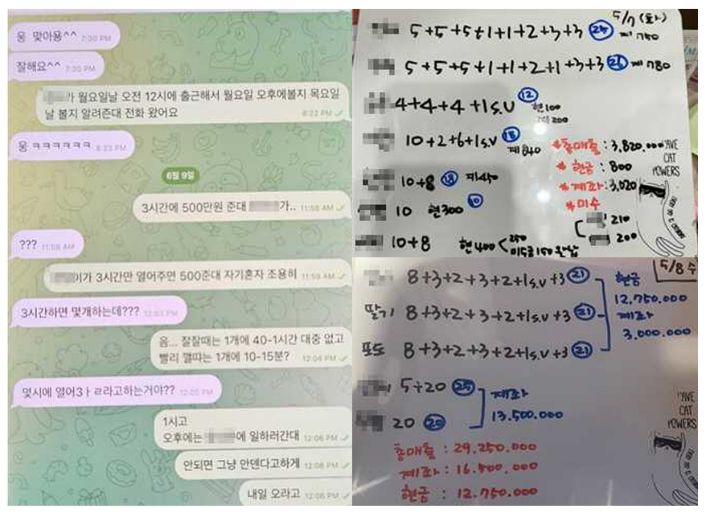 웅 맞아용^^ 7:30 PM
잘해요^^ 7:30 PM
가 월요일날 오전 12시에 출근해서 월요일 오후에볼지 목요일
날 볼지 알려즌대 전화 왔어요 8:23 PM
웅 ㅋㅋㅋㅋㅋㅋ 8:23 PM
6월 9일
3시간에 500만원 준대 가.. 11:58 AM
??? 11:58 AM
이가 3시간만 열어주면 500준대 자기혼자 조용히 11:59 AM
3시간하면 몇개하는데??? 12:03 PM
음... 잘잘때는 1개에 40-1시간 대중 없고
빨리 깰땨는 1개에 10-15분? 12:04 PM
몇시에 열어3ㅏㄹ라고하는거야?? 12:05 PM
1시고
오후에는 에 일하러간대 12:06 PM
안되면 그냥 안덴다고하게 12:06 PM
내일 오라고 12:06 PM
5/7 (화)
5+5+5+1+1+2+3+3 25 계 750
5+5+5+1+1+2+1+3+3 26 계 780
4+4+4+1s.v 12 현100
200
10+2+6+1s.v 18 계 840
10+8 18 계 450
10 현300 10
10+8 현400 250
150
*총매출 : 3,820,000
*현금 : 800
*계좌 : 3,020
*미수
210
200
CAT
POWERS
5/8 수
8+3+2+3+2+1s.v+3 21
딸기 8+3+2+3+2+1s.v+3 21
포도 8+3+2+3+2+1s.v+3 21
현금
12,750.000
계좌
3,000.000
5+20 25
20 20
계좌
13,500.000
총매출 : 29,250.000
계좌 : 16,500.000
현금 : 12,750.000
CAT
POWERS